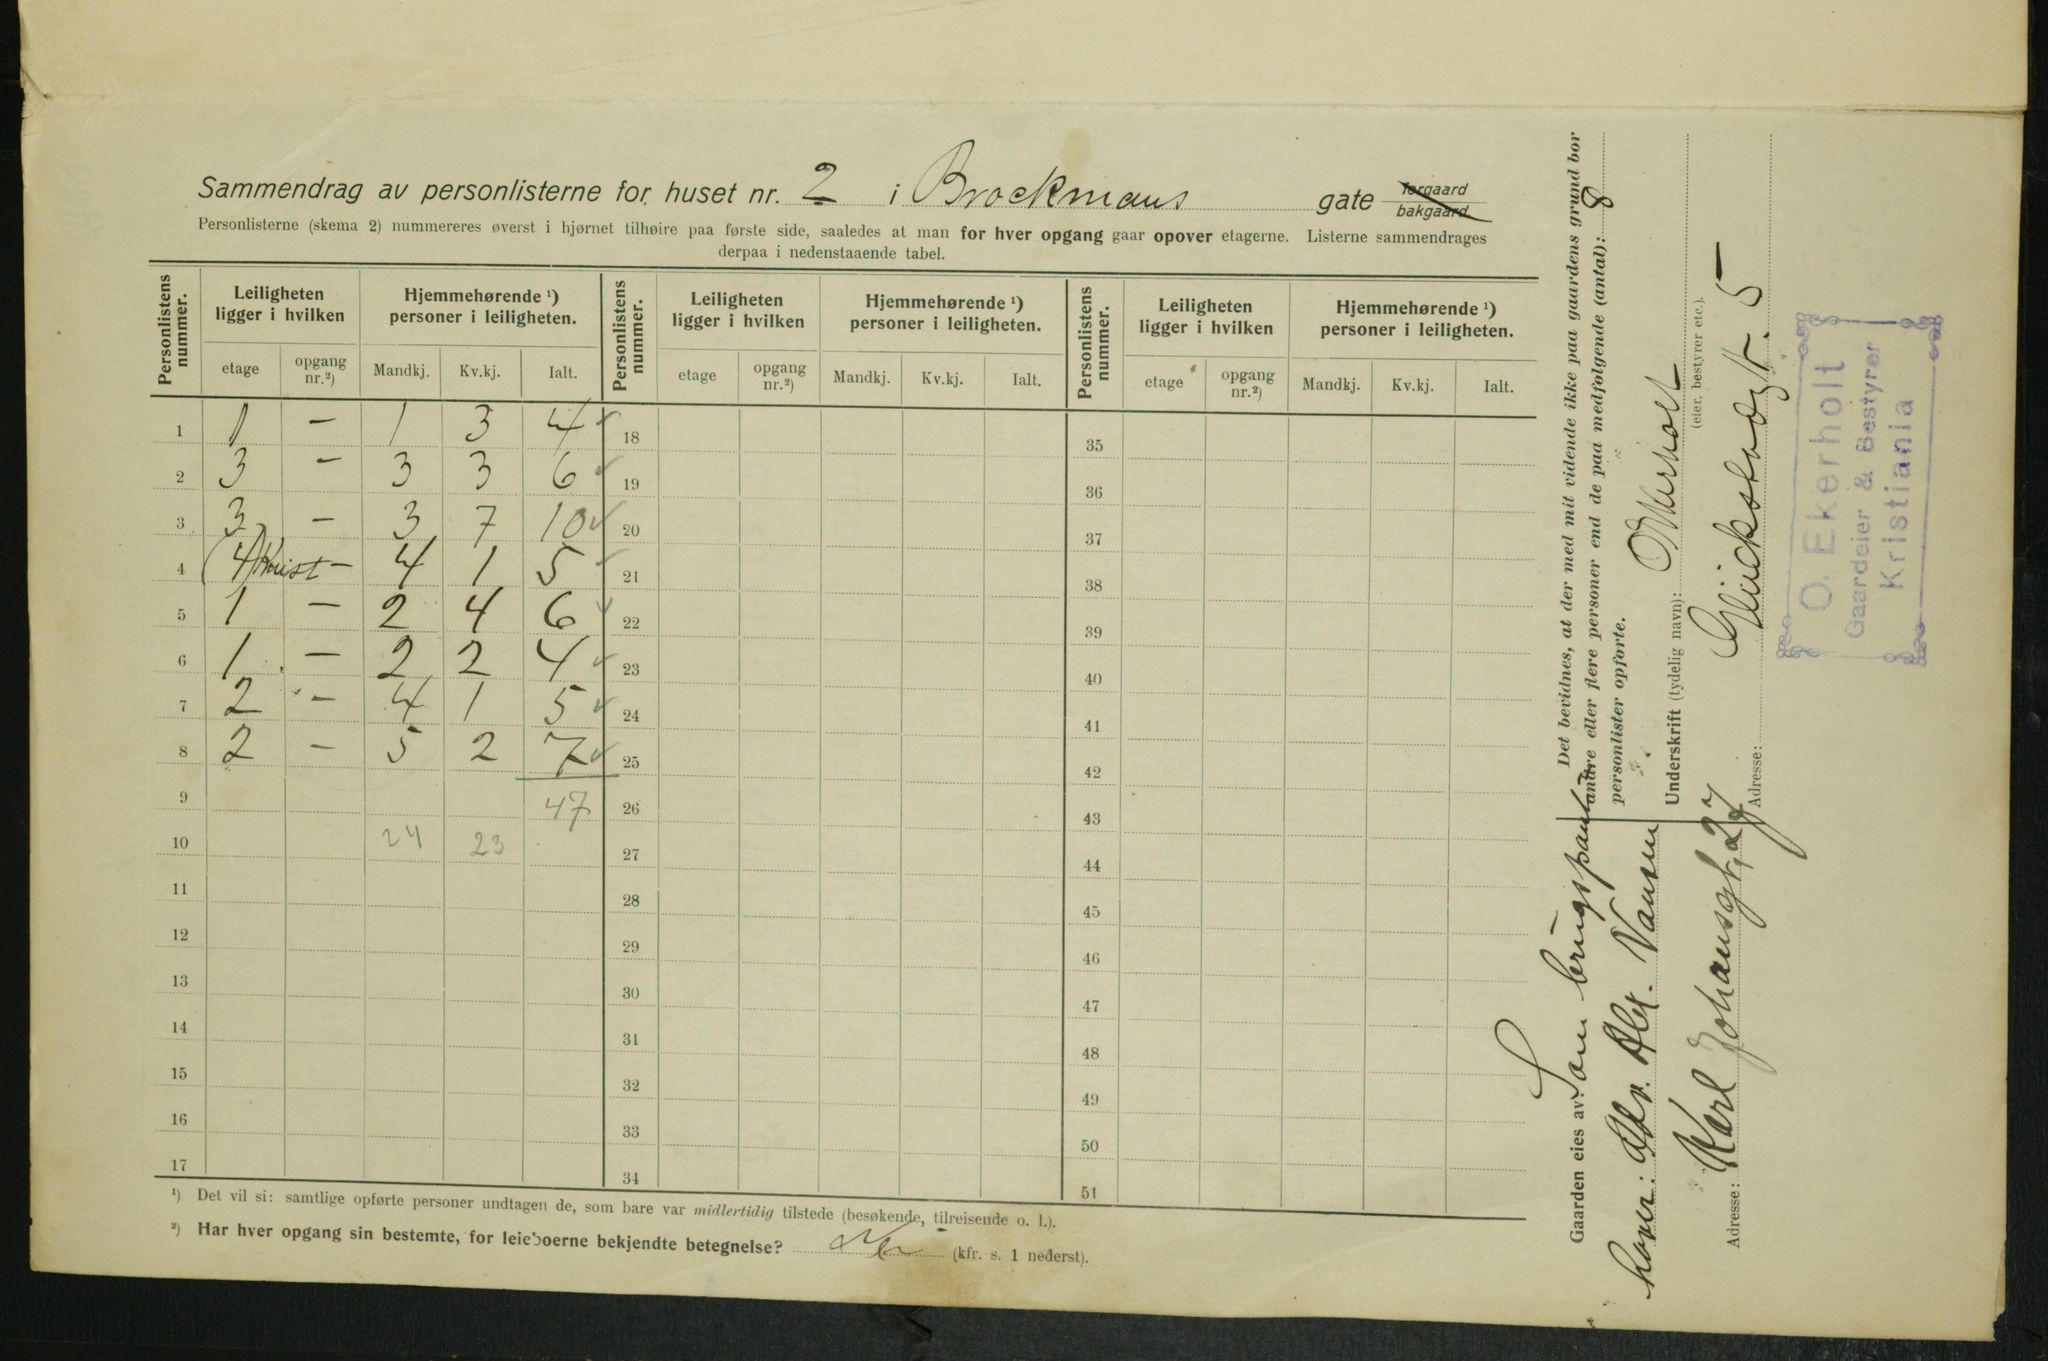 Sammendrag av personlisterne for huset nr. 2 i Brockmans gate forgaard bakgaard
Personlisterne (skema 2) nummereres øverst i hjørnet tilhøire paa første side, saaledes at man for hver opgang gaar opover etagerne. Listerne sammendrages
derpaa i nedenstaaende tabel.
Personlistens nummer. Leiligheten ligger i hvilken Hjemmehørende ¹) personer i leiligheten. Personlistens nummer. Leiligheten ligger i hvilken Hjemmehørende ¹) personer i leiligheten. Personlistens nummer. Leiligheten ligger i hvilken Hjemmehørende ¹) personer i leiligheten.
etage opgang nr.²) Mandkj. Kv.kj. Ialt. etage opgang nr.²) Mandkj. Kv.kj. Ialt. etage opgang nr.²) Mandkj. Kv.kj. Ialt.
1 1 — 1 3 4 ✓ 18 35
2 3 — 3 3 6 ✓ 19 36
3 3 — 3 7 10 ✓ 20 37
4 (4) Kvist — 4 1 5 ✓ 21 38
5 1 — 2 4 6 ✓ 22 39
6 1 — 2 2 4 ✓ 23 40
7 2 — 4 1 5 ✓ 24 41
8 2 — 5 2 7 ✓ 25 42
9 47 26 43
10 24 23 27 44
11 28 45
12 29 46
13 30 47
14 31 48
15 32 49
16 33 50
17 34 51
¹) Det vil si: samtlige opførte personer undtagen de, som bare var midlertidig tilstede (besøkende, tilreisende o. l.).
²) Har hver opgang sin bestemte, for leieboerne bekjendte betegnelse? Nei (kfr. s. 1 nederst).
Det bevidnes, at der med mit vidende ikke paa gaardens grund bor
andre eller flere personer end de paa medfølgende (antal): 8
personlister opførte.
Underskrift (tydelig navn): O Ekerholt
(eier, bestyrer etc.).
Adresse: Glückstadgt. 5
Gaarden eies av:
haver: Adv. Alex. Nansen
Adresse: Karl Johansgt. 27
O. Ekerholt
Gaardeier & Bestyrer
Kristiania